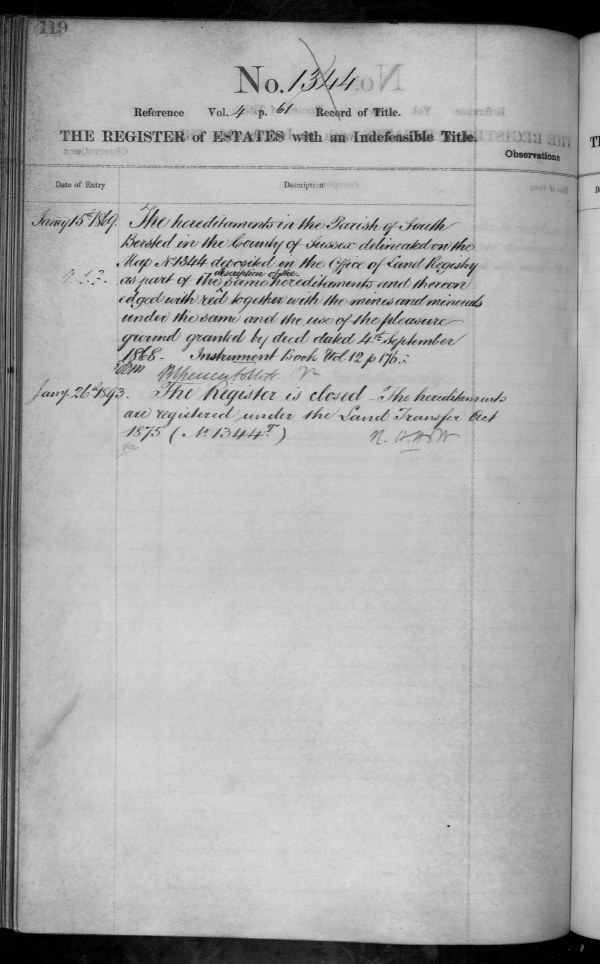 119
No. 1344
Reference Vol. 4 p. 61 Record of Title.
THE REGISTER of ESTATES with an Indefeasible Title.
Observations
Date of Entry Description
15th 1869. The hereditaments in the Parish of South
Bersted in the County of Sussex delineated on the
Map No 1344 deposited in the Office of Land Registry
as part of the description of the same hereditaments and thereon
edged with red together with the mines and minerals
under the same and the use of the pleasure
ground granted by deed dated 4th September
1868. Instrument Book Vol 12 p 176.
Jany. 26th 1893. The Register is closed - The hereditaments
are registered under the Land Transfer Act
1875 (No 1344T)